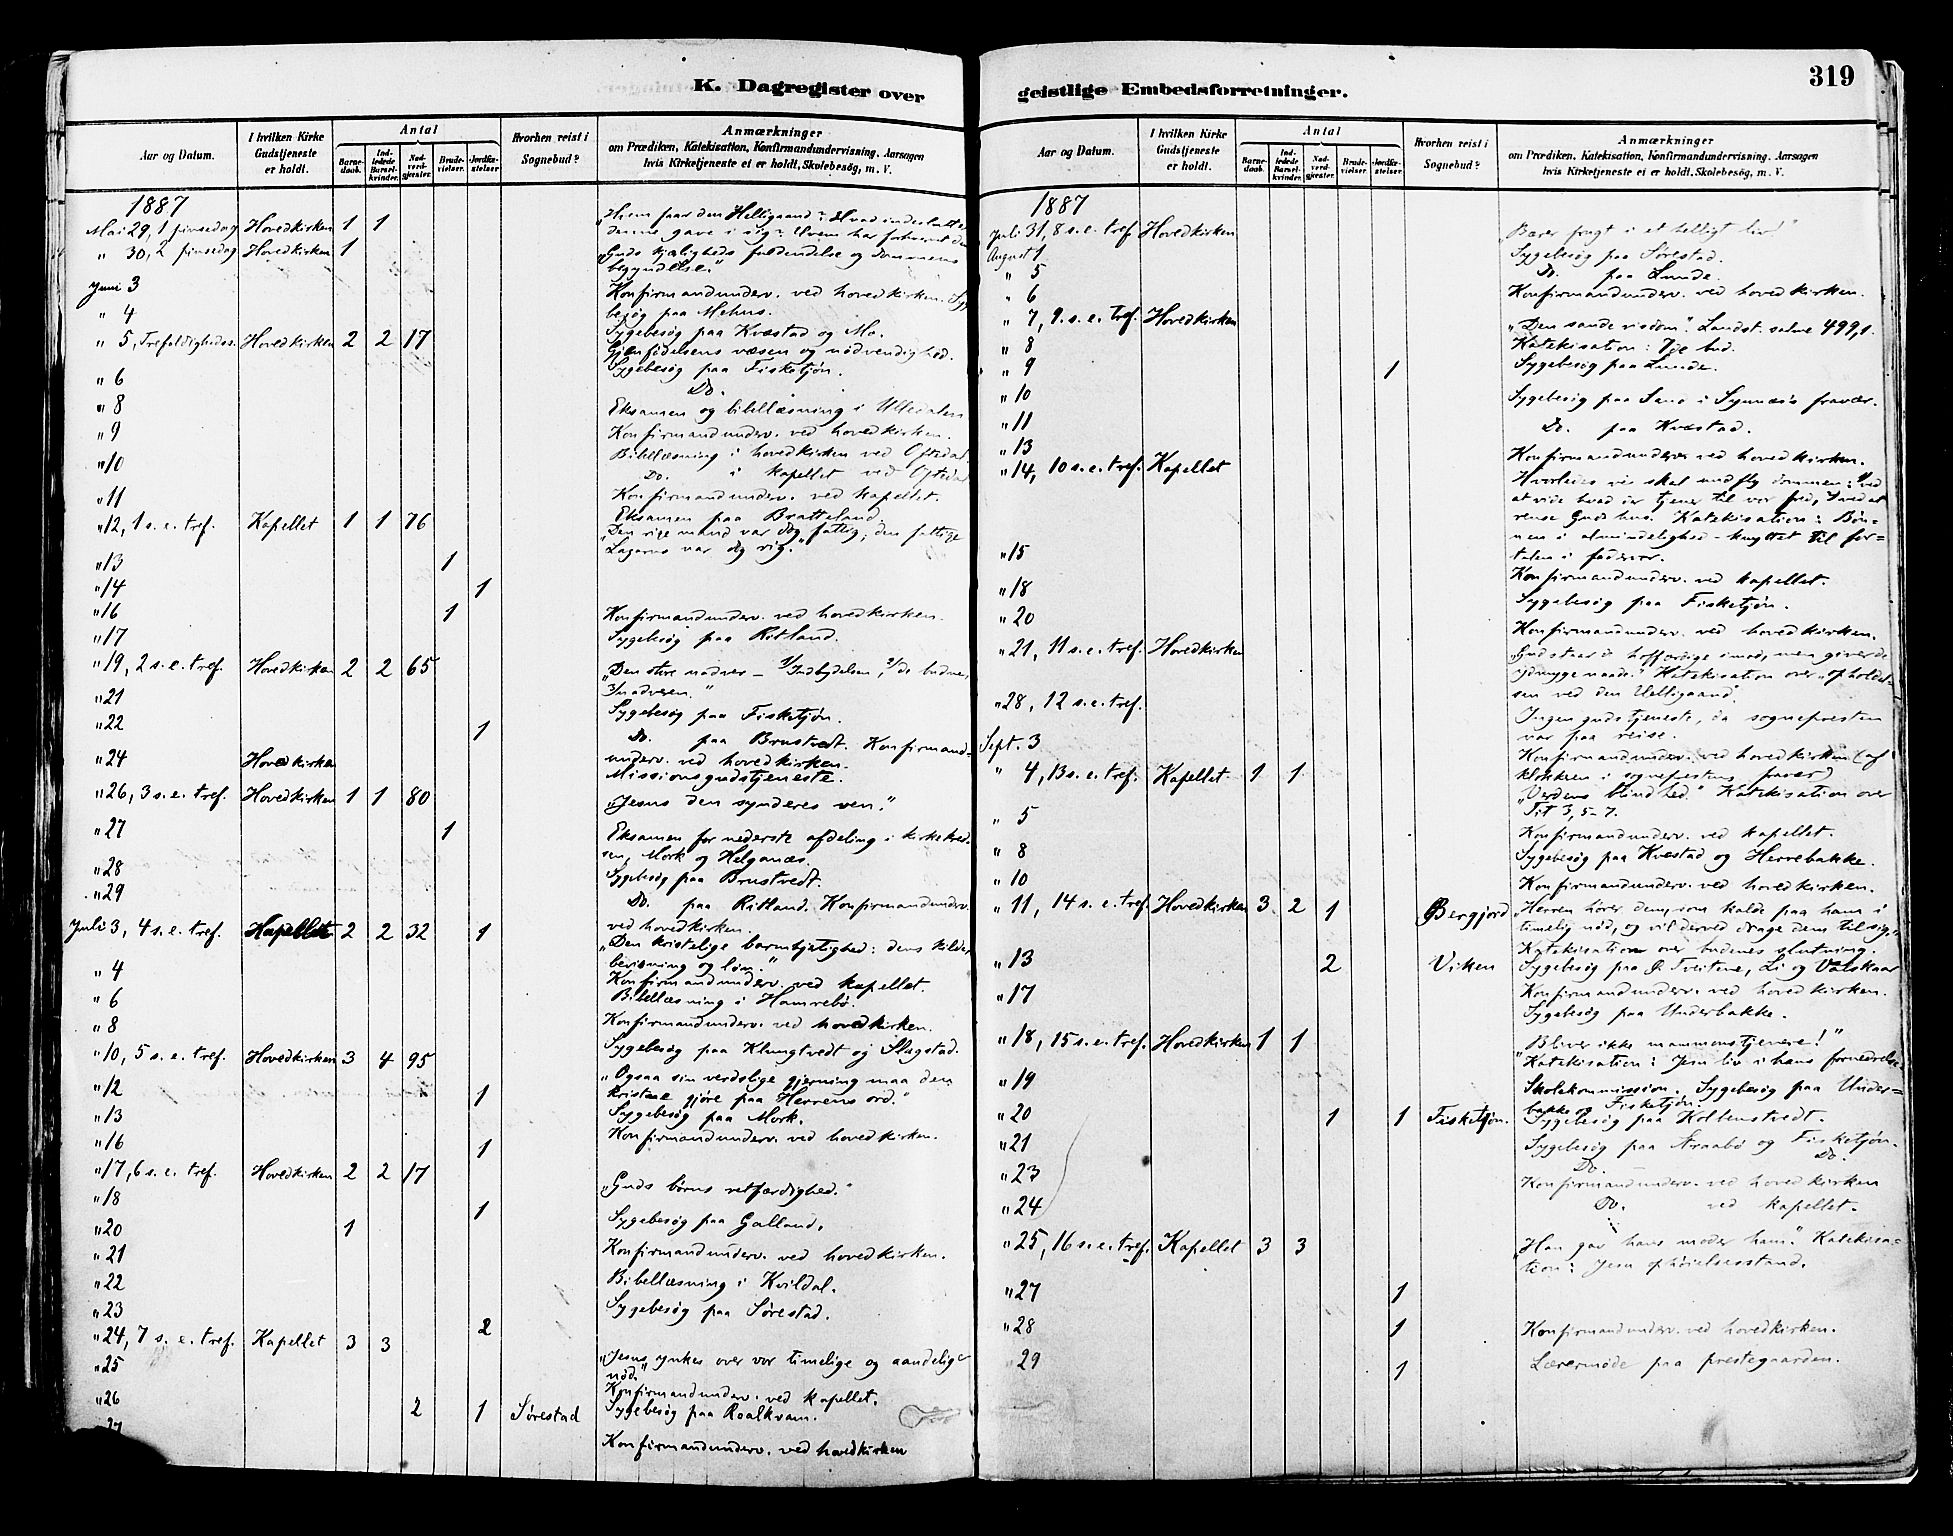 K. Dagregister over
Aar og Datum.
I hvilken Kirke Gudstjeneste er holdt.
Antal
Barnedaab.
Indledede Barselkvinder.
Nadverdgjester.
Brudevielser.
Jordfæstelser
Hvorhen reist i Sognebud?
Anmærkninger
om Prædiken, Katekisation, Konfirmandundervisning. Aarsagen
hvis Kirketjeneste ei er holdt, Skolebesøg, m. V.
1887
Mai 29, 1 pinsedag Hovedkirken 1 1 „Hvem faar den Helligaand? Hvad indeslutter
denne gave i sig? Hvem har
" 30, 2 pinsedag Hovedkirken 1 „Guds kjærligheds fuldendelse og dommens
begyndelse."
Juni 3 Konfirmandunderv. ved hovedkirken. Syge-
besøg paa Mehus.
" 4 Sygebesøg paa Kvæstad og Mo.
" 5, Trefoldigheds. Hovedkirken 2 2 17 Gjenfødelsens væsen og nødvendighed.
Sygebesøg paa Fisketjøn.
" 6 Do.
" 8 Eksamen og bibellæsning i Ulledalen
" 9 Konfirmandunderv. ved hovedkirken.
" 10 Bibellæsning i hovedkirken ved Oftedal
Do. i kapellet ved Oftedal
" 11 Konfirmandunderv. ved kapellet.
Eksamen paa Bratteland.
" 12, 1 s. e. tref. Kapellet 1 1 76 „Den rige mand var dog fattig, den fattige
Lazarus var dog rig."
" 13 1
" 14 1
" 16 1 Konfirmandunderv. ved hovedkirken.
" 17 Sygebesøg paa Ritland.
" 19, 2 s. e. tref. Hovedkirken 2 2 65 „Den store nadver – 1/Indbydelsen, 2/de budne,
3/nadveren."
" 21 Sygebesøg paa Fisketjøn.
" 22 1 Do. paa Brustvedt. Konfirmand-
underv. ved hovedkirken.
" 24 Hovedkirken Missionsgudstjeneste.
" 26, 3 s. e. tref. Hovedkirken 1 1 80 „Jesus den synderes ven."
" 27 1 Eksamen for nederste afdeling i kirkekred-
sen, Mork og Helganæs.
" 28 Sygebesøg paa Brustvedt.
" 29 Do. paa Ritland. Konfirmandunderv.
ved hovedkirken.
Juli 3, 4 s. e. tref. Kapellet 2 2 32 1 „Den kristelige barmhjertighed: dens kilder
bevisning og løn."
" 4 Konfirmandunderv. ved kapellet.
" 6 Bibellæsning i Hamrebø.
" 8 Konfirmandunderv. ved hovedkirken.
" 10, 5 s. e. tref. Hovedkirken 3 4 95 Sygebesøg paa Klungtvedt og Slagstad.
„Ogsaa sin verdslige gjerning maa den
" 12 1 kristne gjøre paa Herrens ord."
" 13 Sygebesøg paa Mork.
" 16 1 Konfirmandunderv. ved hovedkirken.
" 17, 6 s. e. tref. Hovedkirken 2 2 17 „Guds børns retfærdighed."
" 18 1
" 20 1 Sygebesøg paa Galland.
" 21 Konfirmandunderv. ved hovedkirken.
" 22 Bibellæsning i Kvildal.
" 23 2 Sygebesøg paa Sørestad.
" 24, 7 s. e. tref. Kapellet 3 3
" 25 „Jesus ynkes over vor timelige og aandelige
nød."
" 26 2 1 Sørestad Konfirmandunderv. ved kapellet.
Sygebesøg paa Roalkvam.
" 27 Konfirmandunderv. ved hovedkirken
geistlige Embedsforretninger.
319
Aar og Datum.
I hvilken Kirke Gudstjeneste er holdt.
Antal
Barnedaab.
Indledede Barselkvinder.
Nadverdgjester.
Brudevielser.
Jordfæstelser.
Hvorhen reist i Sognebud?
Anmærkninger
om Prædiken, Katekisation, Konfirmandundervisning. Aarsagen
hvis Kirketjeneste ei er holdt, Skolebesøg, m. V.
1887
Juli 31, 8 s. e. tref. Hovedkirken „Bærer frugt i et helligt liv!"
August 1 Sygebesøg paa Sørestad.
" 5 Do. paa Lunde.
" 6 Konfirmandunderv. ved hovedkirken.
" 7, 9. s. e. tref. Hovedkirken „Den sande visdom". Landst. salme 499,1.
Katekisation: 7je bud.
" 8 Sygebesøg paa Lunde.
" 9 1
" 10 Sygebesøg paa Sand i Synnæs's fravær.
" 11 Do. paa Kvæstad.
" 13 Konfirmandunderv. ved hovedkirken.
" 14, 10 s. e. tref. Kapellet Hvorledes vi skal undfly dommen: 1/ved
at vide hvad der tjener til vor fred, 2/ved at
rense Guds hus. Katekisation: Bøn-
nen i almindelighed – knyttet til for-
" 15 talen i fadervor.
Konfirmandunderv. ved kapellet.
" 18 Sygebesøg paa Fisketjøn.
" 20 Konfirmandunderv. ved hovedkirken.
" 21, 11 s. e. tref. Hovedkirken „Gud staar de hoffærdige imod, men giver de
ydmyge naade." Katekisation over „opholdel-
sen ved den Helligaand".
" 28, 12 s. e. tref. Ingen gudstjeneste, da sognepresten
var paa reise.
Sept. 3 Konfirmandunderv. ved hovedkirken (af
klokken i sogneprestens fravær)
" 4, 13 s. e. tref. Kapellet 1 1 „Verdens blindhed." Katekisation over
Tit 3, 5-7.
" 5 Konfirmandunderv. ved kapellet.
" 8 Sygebesøg paa Kvæstad og Herrebakke.
" 10 Konfirmandunderv. ved hovedkirken.
" 11, 14 s. e. tref. Hovedkirken 3 2 1 Bergjord „Herren hører dem, som kalde paa ham i
timelig nød, og vil derved drage dem til sig."
Katekisation over budenes slutning
" 13 2 Viken Sygebesøg paa Tveitene, Li og Vatskaar
" 17 Konfirmandunderv. ved hovedkirken.
Sygebesøg paa Underbakke.
" 18, 15 s. e. tref. Hovedkirken 1 1 „Bliver ikke mammonstjenere!"
Katekisation: Jesu liv i hans fornedrelse
" 19 Skolekommission. Sygebesøg paa Under-
bakke og Fisketjøn.
" 20 1 1 Fisketjøn. Sygebesøg paa Kolbenstvedt.
" 21 Sygebesøg paa Araabø og Fisketjøn.
" 23 Do. Do.
Konfirmandunderv. ved hovedkirken
" 24 Do. ved kapellet.
" 25, 16 s. e. tref. Kapellet 3 3 „Han gav hans moder ham." Katekisa-
tion: Jesu ophøielsesstand.
" 27 1
" 28 1 Konfirmandunderv. ved hovedkirken.
" 29 1 Lærermøde paa prestegaarden.